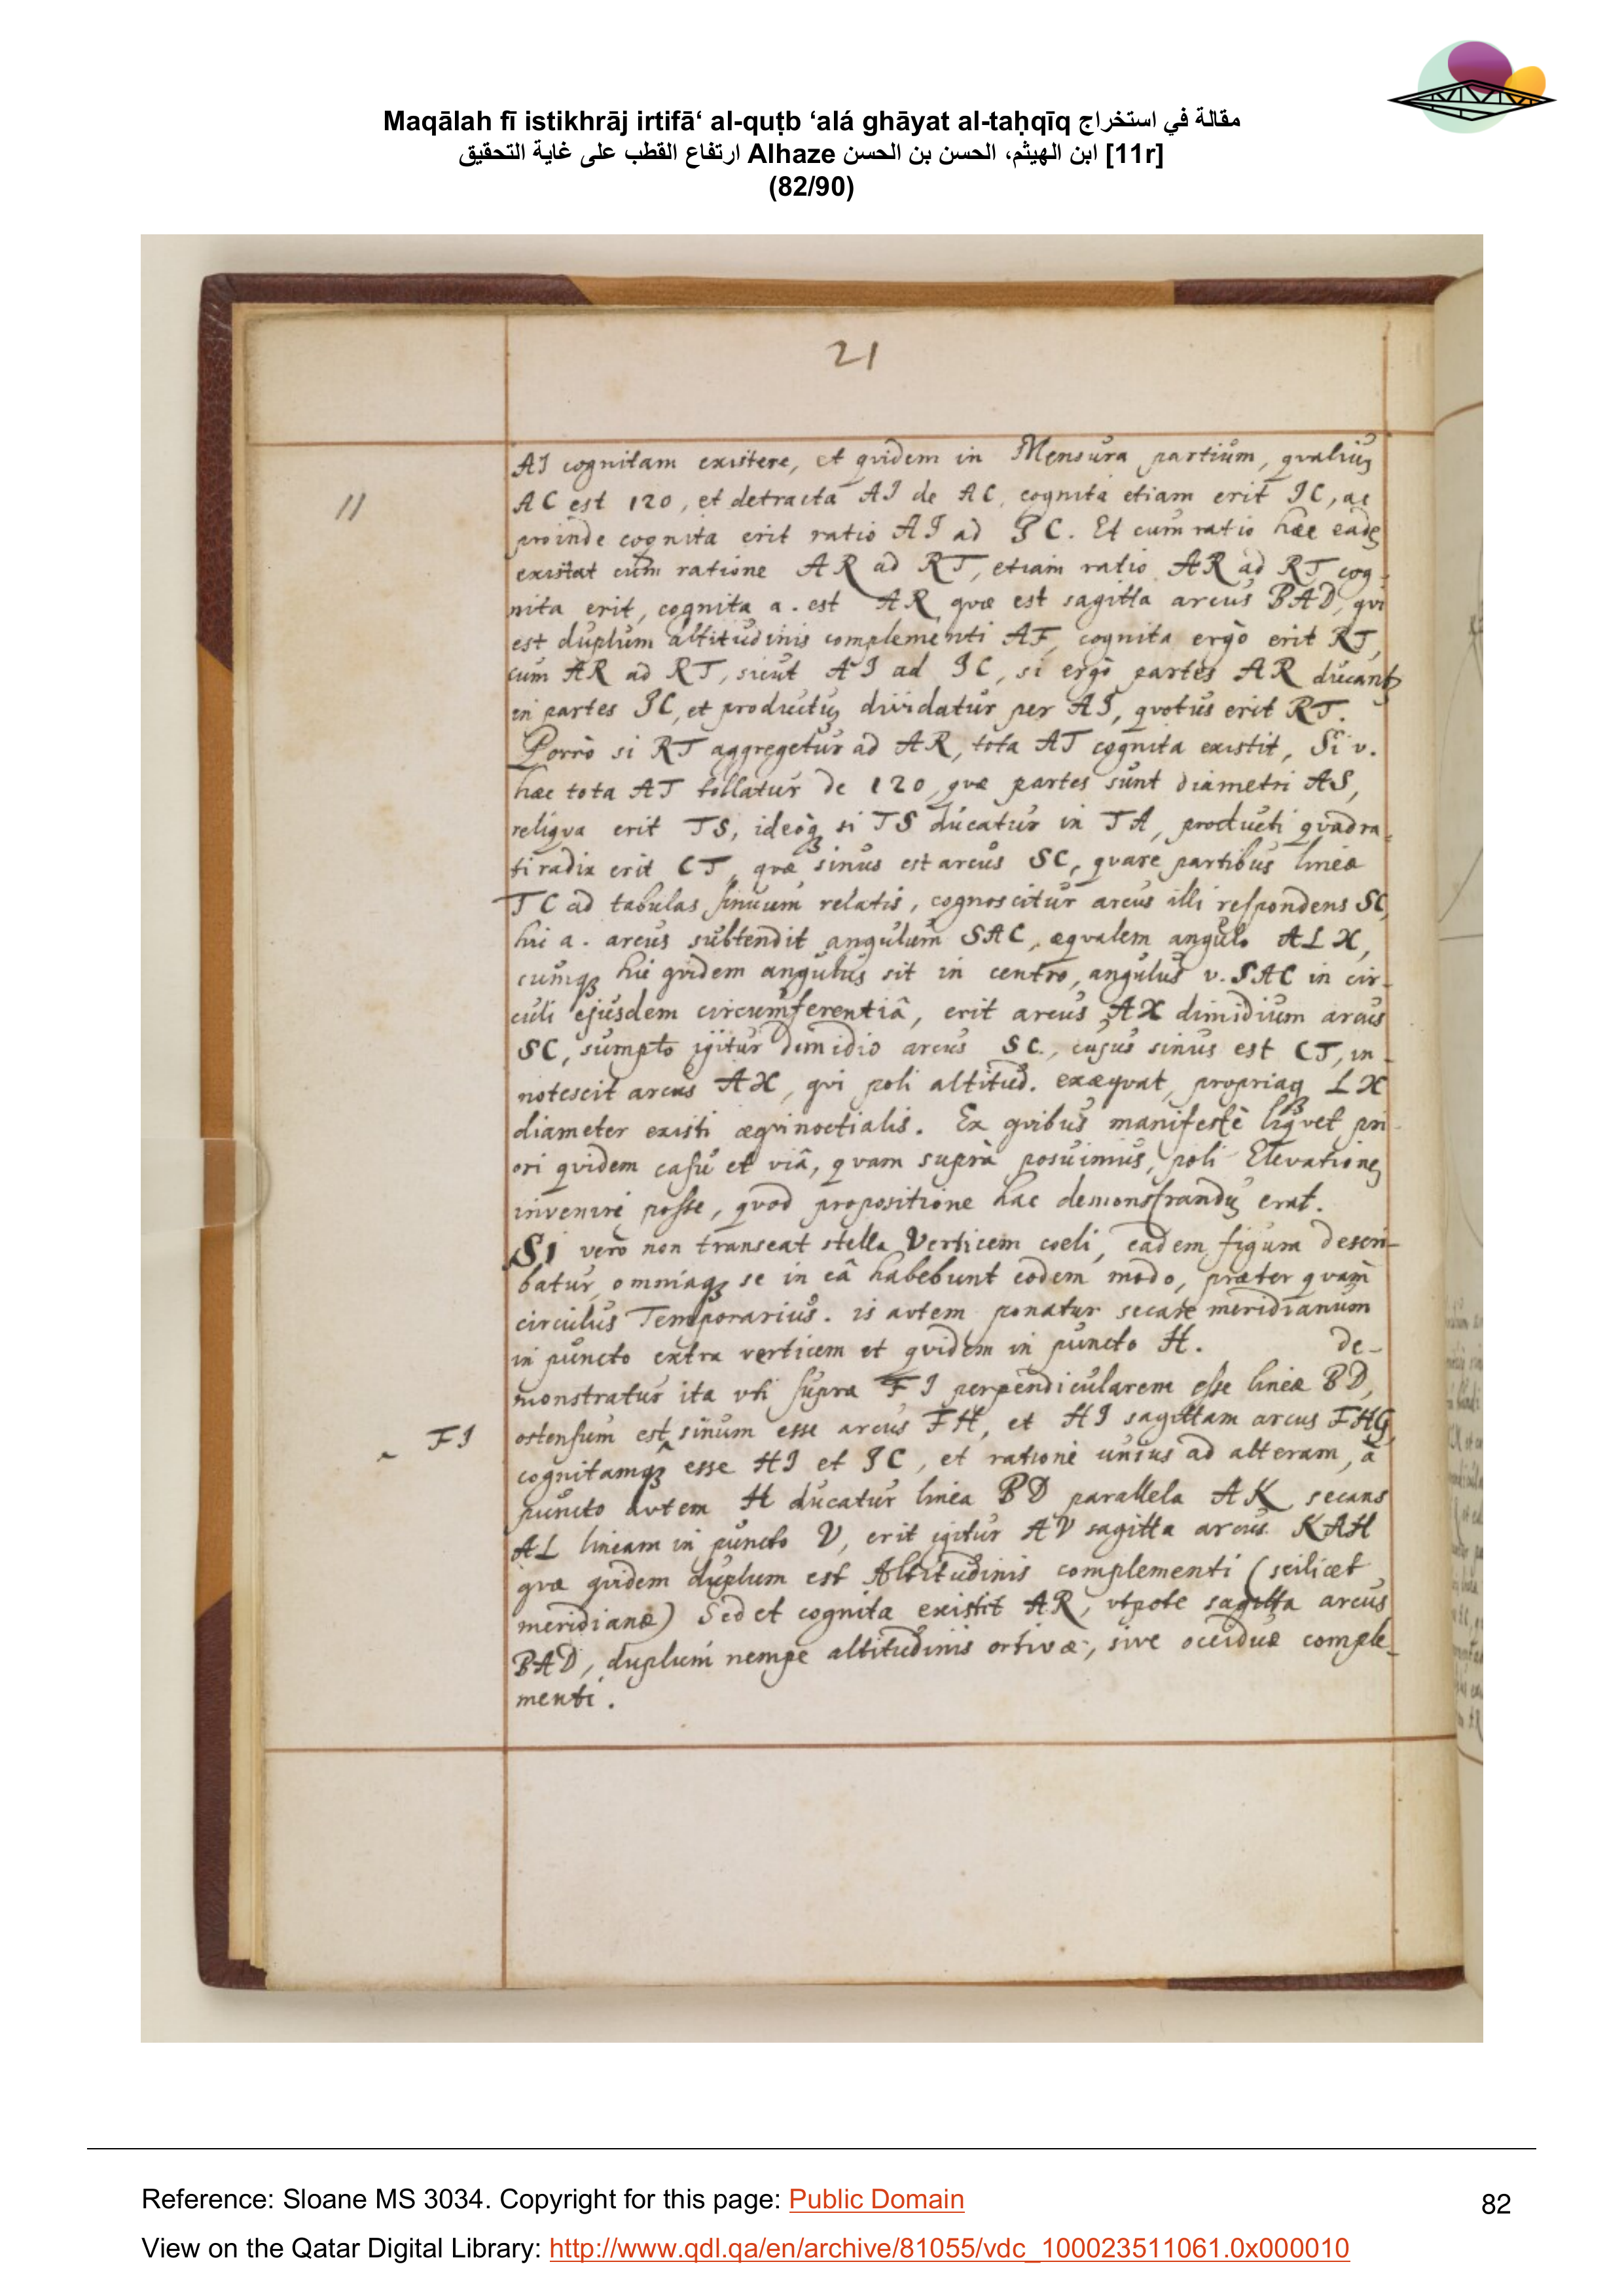 Maqālah fī istikhrāj irtifā‘ al-quṭb ‘alá ghāyat al-taḥqīq مقالة في استخراج
ارتفاع القطب على غاية التحقيق Alhaze ابن الهيثم، الحسن بن الحسن [11r]
(82/90)
21
11
AI cognitam existere, et qvidem in Mensura partium, qvaliuȝ
AC est 120, et detracta AI de AC, cognita etiam erit IC, ac
proinde cognita erit ratio AI ad IC. Et cum ratio hæc eadeȝ
existat cum ratione AR ad RT, etiam ratio AR ad RT cog-
nita erit, cognita a. est AR qvæ est sagitta arcus BAD, qvi
est duplum altitudinis complementi AF, cognita ergò erit RT,
cum AR ad RT, sicut AI ad IC, si ergò partes AR ducantȝ
in partes IC, et productuȝ dividatur per AI, qvotus erit RT.
Porrò si RT aggregetur ad AR, tota AT cognita existit, Si v.
hæc tota AT tollatur de 120, qvæ partes sunt diametri AS,
reliqva erit TS, ideoqȝ si TS ducatur in TA, producti qvadra-
ti radix erit CT, qvæ sinus est arcus SC, qvare partibus lineæ
TC ad tabulas sinuum relatis, cognoscitur arcus illi respondens SC,
hic a. arcus subtendit angulum SAC, æqvalem angulo ALX,
cumqȝ hic qvidem angulus sit in centro, angulus v. SAC in cir-
culi ejusdem circumferentiâ, erit arcus AX dimidium arcus
SC, sumpto igitur dimidio arcus SC, cujus sinus est CT, in-
notescit arcus AX, qvi poli altitud. exæqvat, propriaqȝ LX
diameter existi æqvinoctialis. Ex qvibus manifestè liqvet pri-
ori qvidem casu et viâ, qvam suprà posuimus, poli Elevationeȝ
inveniri posse, qvod propositione hac demonstranduȝ erat.
Si verò non transeat stella Verticem coeli, eadem figura descri-
batur, omniaqȝ se in eâ habebunt eodem modo, præter qvam
circulus Temporarius. is avtem ponatur secare meridianum
in puncto extra verticem et qvidem in puncto H. de-
monstratur ita vti supra FI perpendicularem esse lineæ BD,
FI
ostensum est ‸ sinum esse arcus FH, et HI sagittam arcus FHG,
cognitamqȝ esse HI et IC, et rationē unius ad alteram, à
puncto avtem H ducatur linea BD parallela AK secans
AL lineam in puncto V, erit igitur AV sagitta arcus KAH
qvæ qvidem duplum est Altitudinis complementi (scilicet
meridianæ) Sed et cognita existit AR, vtpote sagitta arcus
BAD, duplum nempe altitudinis ortivæ, sive occiduæ comple-
menti.
Reference: Sloane MS 3034. Copyright for this page: Public Domain
82
View on the Qatar Digital Library: http://www.qdl.qa/en/archive/81055/vdc_100023511061.0x000010